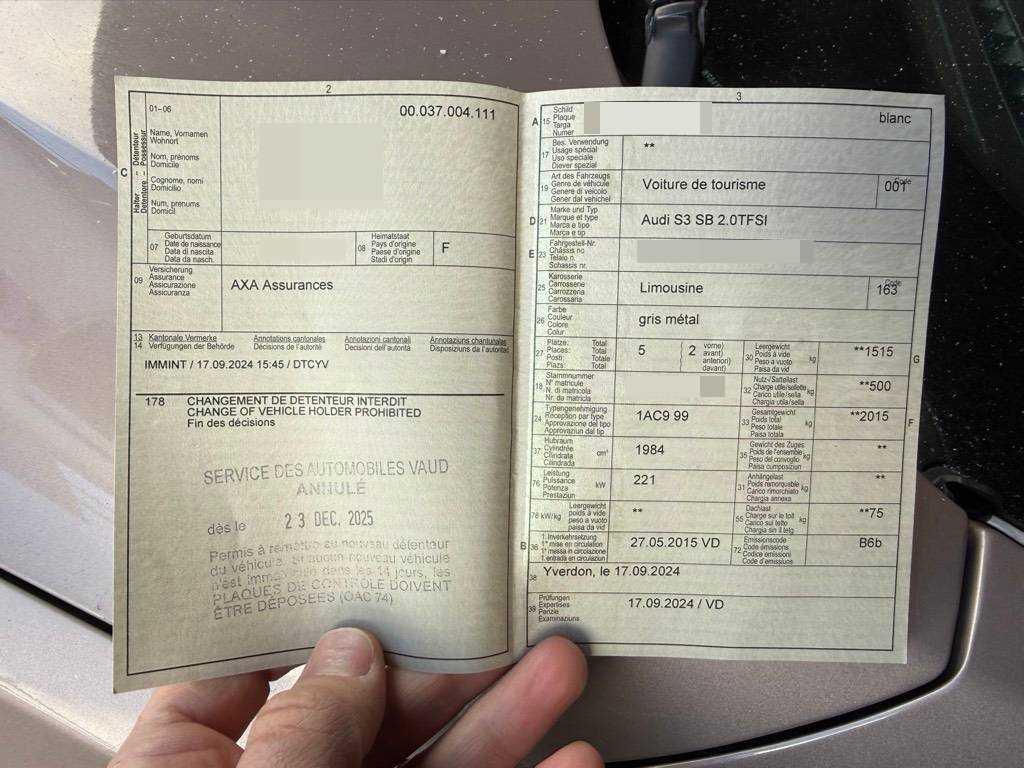 2
01–06
00.037.004.111
C
Halter – Détenteur
Detentore – Possessur
Name, Vornamen
Wohnort
Nom, prénoms
Domicile
Cognome, nomi
Domicilio
Num, prenums
Domicil
07
Geburtsdatum
Date de naissance
Data di nascita
Data da nasch.
08
Heimatstaat
Pays d'origine
Paese d'origine
Stadi d'origin
F
09
Versicherung
Assurance
Assicurazione
Assicuranza
AXA Assurances
13
14
Kantonale Vermerke
Verfügungen der Behörde
Annotations cantonales
Décisions de l'autorité
Annotazioni cantonali
Decisioni dell'autorità
Annotaziuns chantunalas
Disposiziuns da l'autoritad
IMMINT / 17.09.2024 15:45 / DTCYV
178 CHANGEMENT DE DETENTEUR INTERDIT
CHANGE OF VEHICLE HOLDER PROHIBITED
Fin des décisions
SERVICE DES AUTOMOBILES VAUD
ANNULÉ
dès le 23 DEC. 2025
Permis à remettre au nouveau détenteur
du véhicule. Si aucun nouveau véhicule
n'est immatriculé dans les 14 jours, les
PLAQUES DE CONTRÔLE DOIVENT
ÊTRE DÉPOSÉES (OAC 74)
3
A
15
Schild
Plaque
Targa
Numer
blanc
17
Bes. Verwendung
Usage spécial
Uso speciale
Diever spezial
**
19
Art des Fahrzeugs
Genre de véhicule
Genere di veicolo
Gener dal vehichel
Voiture de tourisme
Code
001
D
21
Marke und Typ
Marque et type
Marca e tipo
Marca e tip
Audi S3 SB 2.0TFSI
E
23
Fahrgestell-Nr.
Châssis no
Telaio n.
Schassis nr.
25
Karosserie
Carrosserie
Carrozzeria
Carossaria
Limousine
Code
163
26
Farbe
Couleur
Colore
Colur
gris métal
27
Plätze: Total
Places: Total
Posti: Totale
Plazs: Total
5
2
vorne)
avant)
anteriori)
davant)
30
Leergewicht
Poids à vide
Peso a vuoto
Paisa da vid
kg
**1515
G
18
Stammnummer
N° matricule
N. di matricola
Nr. da matricla
32
Nutz-/Sattellast
Charge utile/sellette
Carico utile/sella
Chargia utila/sella
kg
**500
24
Typengenehmigung
Réception par type
Approvazione del tipo
Approvaziun dal tip
1AC9 99
33
Gesamtgewicht
Poids total
Peso totale
Paisa totala
kg
**2015
F
37
Hubraum
Cylindrée
Cilindrata
Cilindrada
cm³
1984
35
Gewicht des Zuges
Poids de l'ensemble
Peso del convoglio
Paisa cumposiziun
kg
**
76
Leistung
Puissance
Potenza
Prestaziun
kW
221
31
Anhängelast
Poids remorquable
Carico rimorchiato
Chargia annexa
kg
**
78
kW/kg
Leergewicht
poids à vide
peso a vuoto
paisa da vid
**
55
Dachlast
Charge sur le toit
Carico sul tetto
Chargia sin il tetg
kg
**75
B
36
1. Inverkehrsetzung
1re mise en circulation
1a messa in circolazione
1. entrada en circulaziun
27.05.2015 VD
72
Emissionscode
Code émissions
Codice emissioni
Code d'emissiuns
B6b
38
Yverdon, le 17.09.2024
39
Prüfungen
Expertises
Perizie
Examinaziuns
17.09.2024 / VD